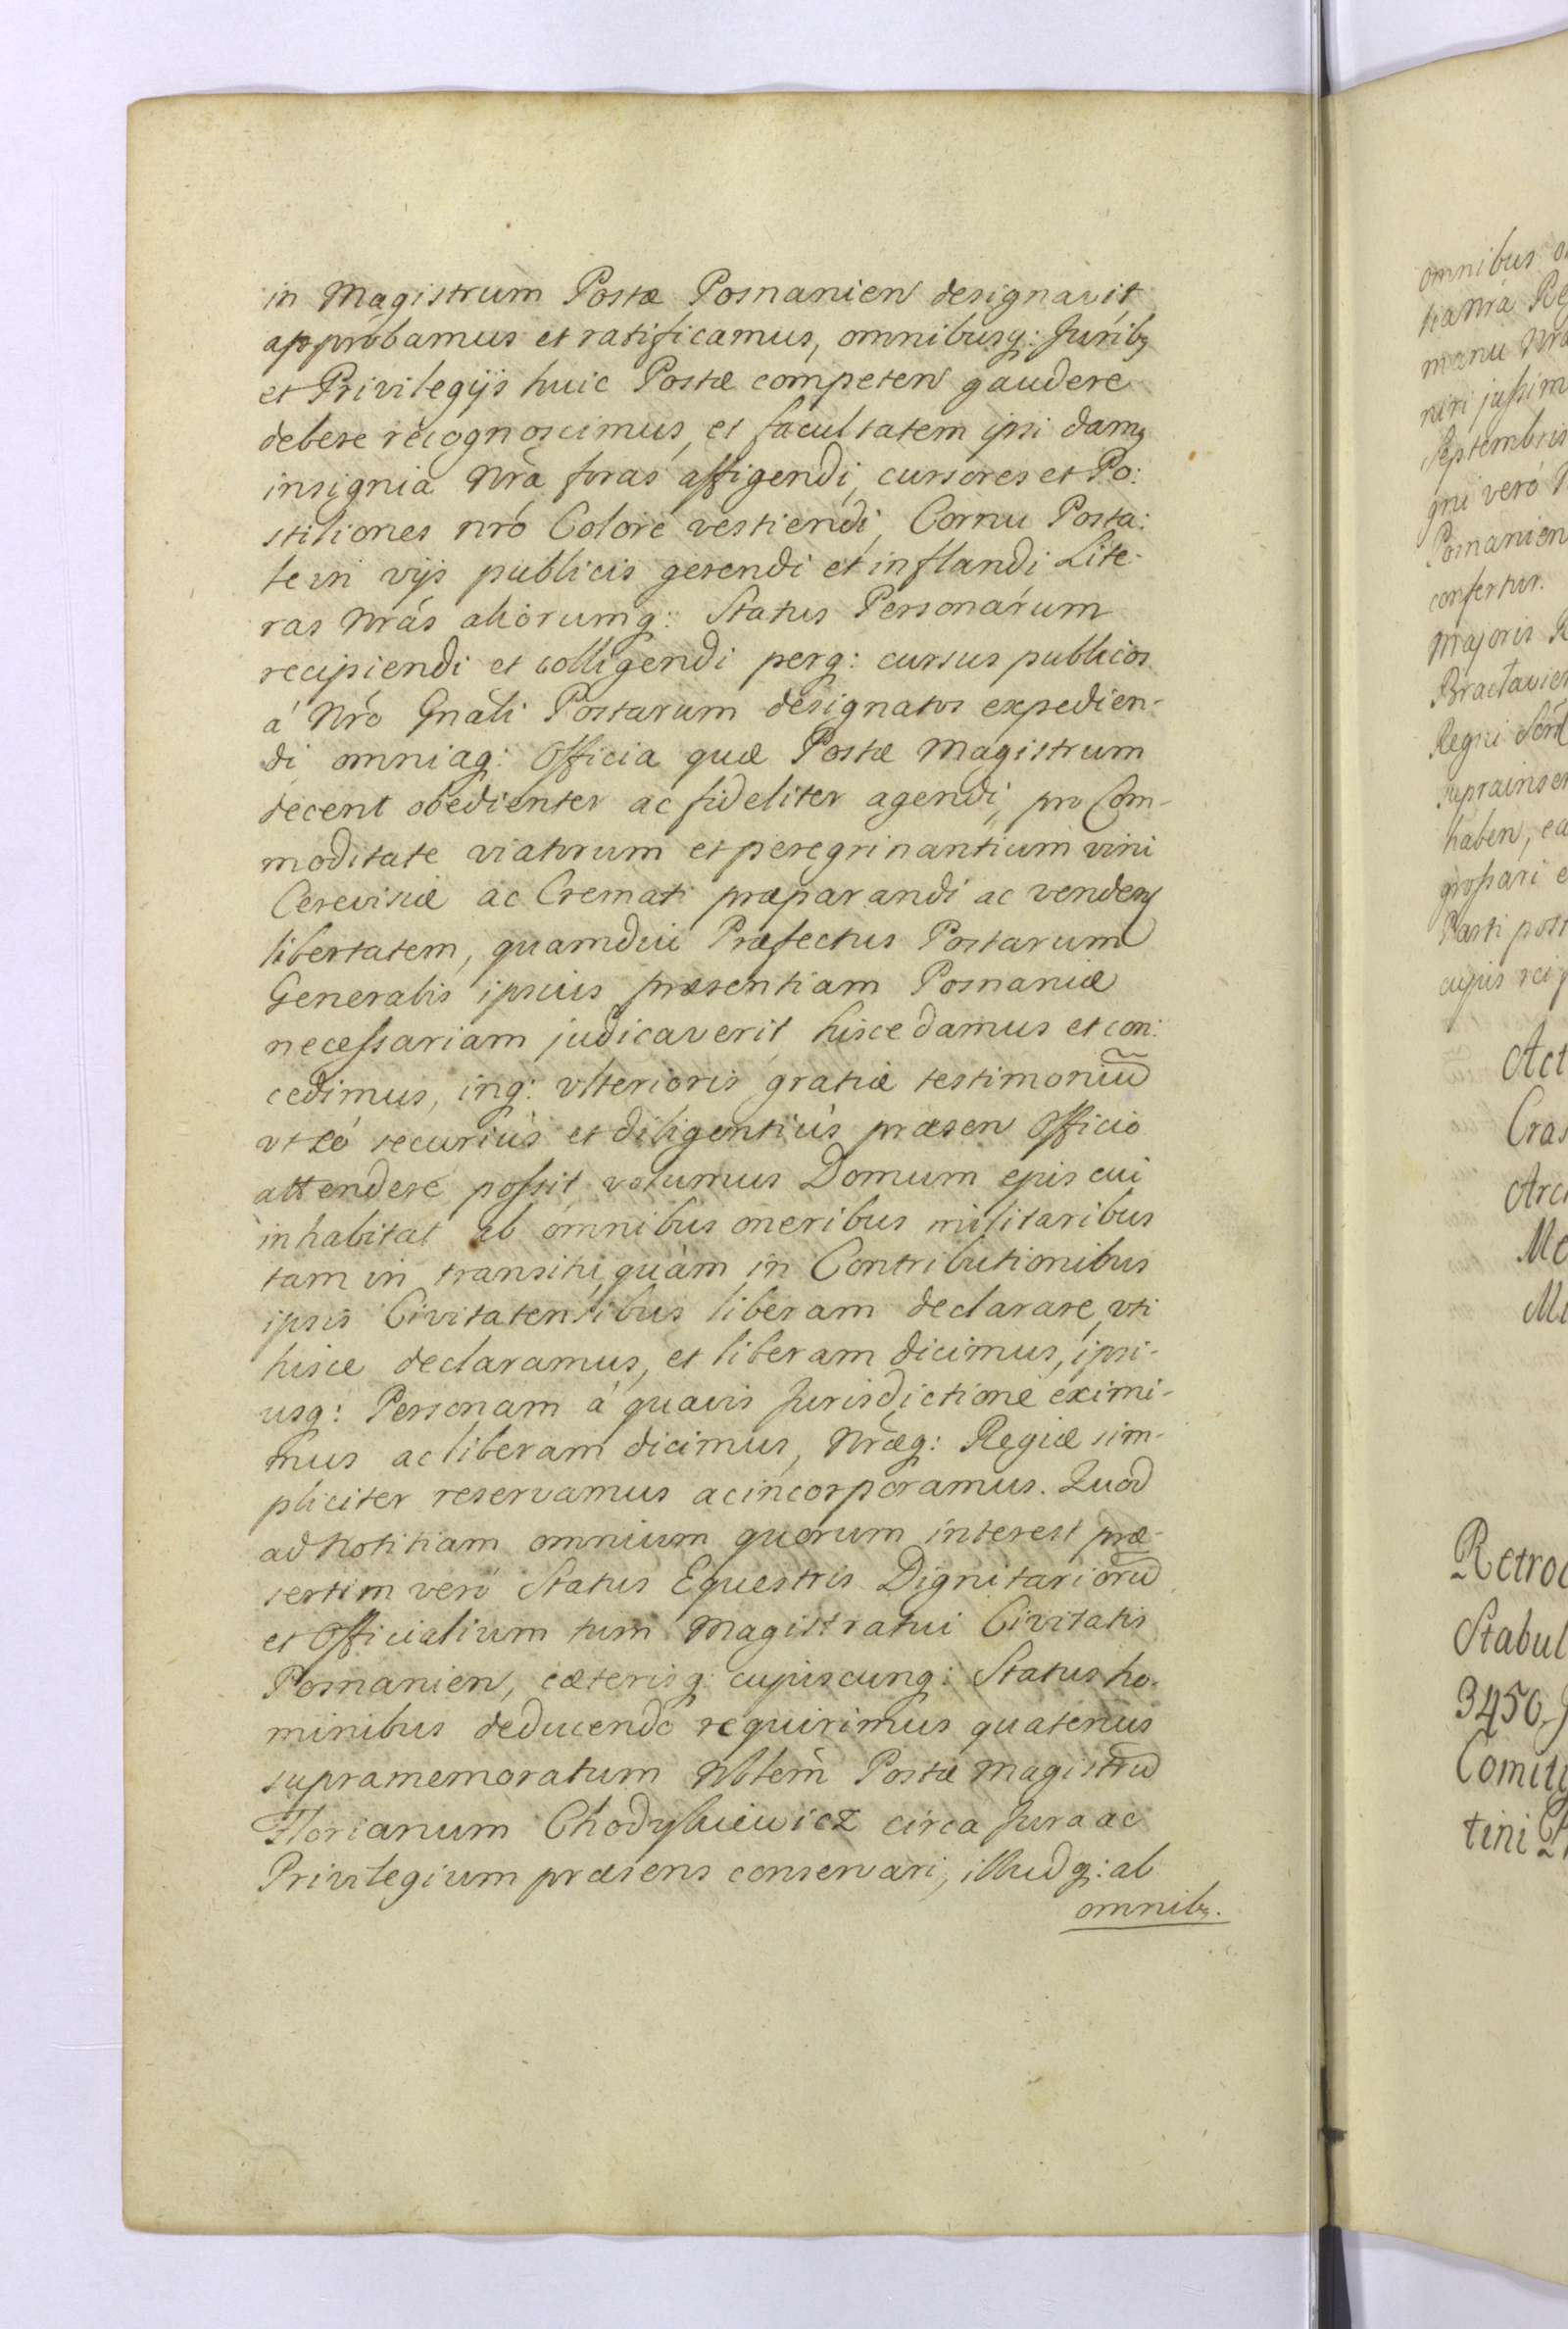 in Magistrum Postæ Posnanien designavit
approbamus et ratificamus, omnibusq: Juribq
et Privilegijs huic Postæ competen gaudere
debere recognoscimus, et facultatem ipsi damq
insignia Nrã foras affigendi, cursores et Po:
stiliones nró Colore vestiendi, Cornu Posta:
le in vijs publicis gerendi et inflandi Lite-
ras Nrás aliorumq: Status Personarum
recipiendi et colligendi perq: cursus publicos
á Nró Gnáli Postarum designatos expedien-
di omniaq: Officia quæ Postæ Magistrum
decent obedienter ac fideliter agendi, pro Com-
moditate viatorum et peregrinantium vini
Cerevisiæ ac Cremati præparandi ac venden
libertatem, quamdiu Præfectus Postarum
Generalis ipsius præsentiam Posnaniæ
necessariam judicaverit hisce damus et con:
cedimus, inq: vlterioris gratiæ testimoniũ
vt eó securiùs et diligentiùs præsen Officio
attendere possit volumus Domum ejus cui
inhabitat ab omnibus oneribus militaribus
tam in transitu, quàm in Contributionibus
ipsis Civitatensibus liberam declarare, vti
hisce declaramus, et liberam dicimus, ipsi-
usq: Personam á quavis Jurisdictione eximi-
mus ac liberam dicimus, Nræq: Regiæ sim-
pliciter reservamus ac incorporamus. Quod
ad Notitiam omnium quorum interest præ-
sertim veró Status Equestris Dignitariorũ
et Officialium tum Magistratui Civitatis
Posnanien, cæterisq: cujuscunq: Status ho-
minibus deducendo requirimus quatenus
supramemoratum Nblem̃ Postæ Magistrũ
Florianum Chodykiewicz circa Jura ac
Privilegium præsens conservari, illudq: ab
omnibq.
omnibus
manu
Septembris
gni veró
Posnanien
confertur.
Majoris
Regni
haben, ea
Parti post
Act
Cras
Arc
Me
Retroc
Stabul
3450
Comity
tini